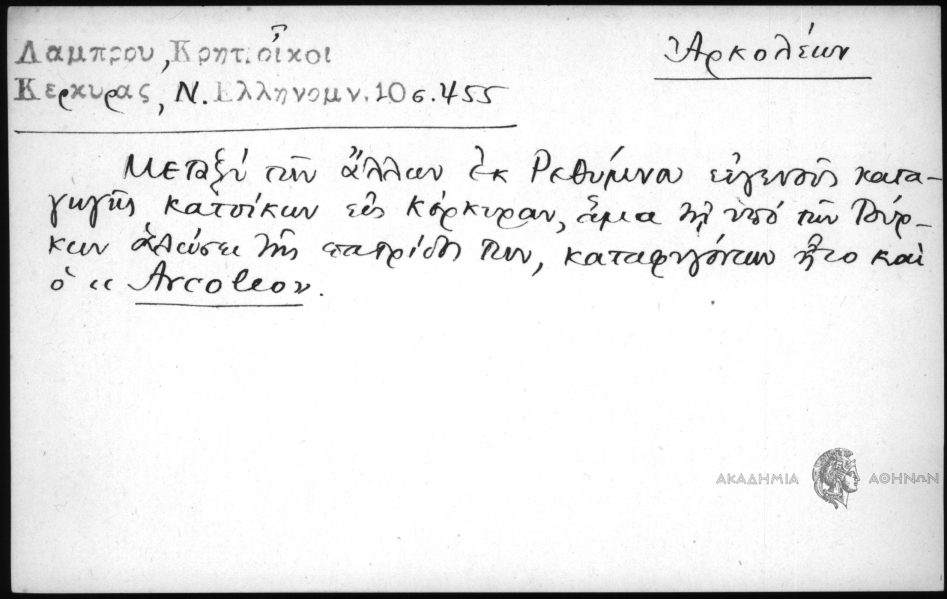 Λαμπρου, Κρητ. οἶκοι
Ἀρκολέων
Κερκυρας, Ν. Ελληνομν. 10 σ. 455
Μεταξύ τῶν ἄλλων ἐκ Ρεθύμνου εὐγενοῦς κατα-
γωγῆς κατοίκων εἰς Κέρκυραν, ἅμα τῇ ὑπό τῶν Τούρ-
κων ἁλώσει τῆς πατρίδος των, καταφυγόντων ἦτο καί
ὁ « Arcoleon.
ΑΚΑΔΗΜΙΑ ΑΘΗΝΩΝ